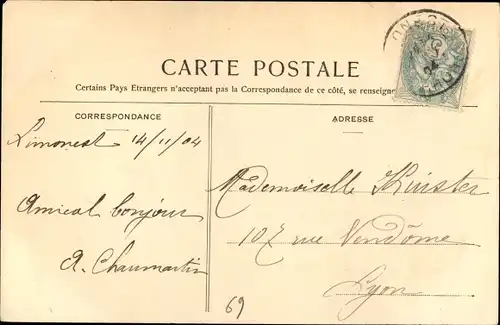 CARTE POSTALE
Certains Pays Etrangers n'acceptant pas la Correspondance de ce côté, se renseigne
CORRESPONDANCE
ADRESSE
Limonest 14/11/04
Amical bonjour
A. Chaumartin
Mademoiselle
107 rue Vendôme
Lyon
69